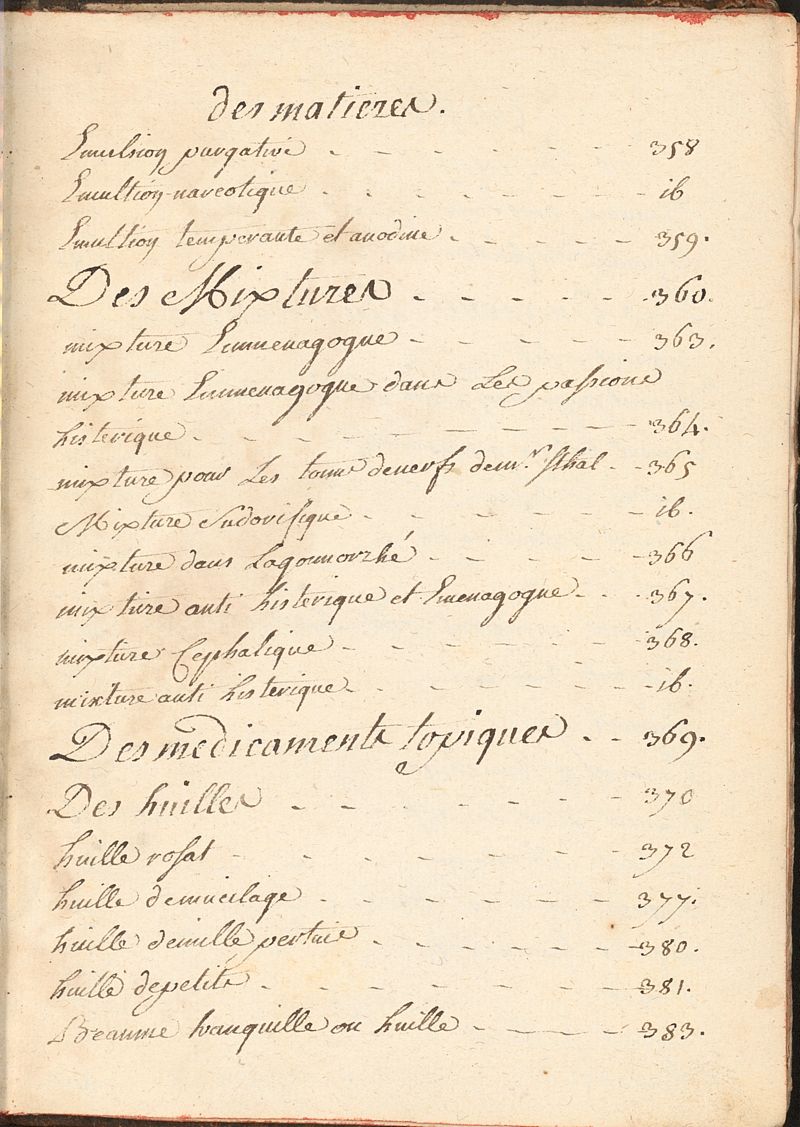 des matieres.
Emulsion purgative - - - - - - 358
Emultion narcotique - - - - - - ib
Emultion temperante et anodine - - - - - 359.
Des Mixtures - - - - - 360.
mixture Emmenagogue - - - - - 363.
mixture Emmenagogue dans Les passions
histerique - - - - - - - - 364.
mixture pour Les de nerfs de mr. sthal - - 365
Mixture Sudorifique - - - - - - ib.
mixture dans Lagonnorrhé - - - - - 366
mixture anti histerique et Emenagogue - - - 367.
mixture Cephalique - - - - - - 368.
mixture anti histerique - - - - - - ib.
Des medicaments topiques - - 369.
Des huilles - - - - - - 370
huille rosat - - - - - - - 372
huille de mucilage - - - - - - 377.
huille de mille pertuis - - - - - 380.
huille de petits - - - - - - - 381.
Beaume tranquille ou huille - - - - 383.